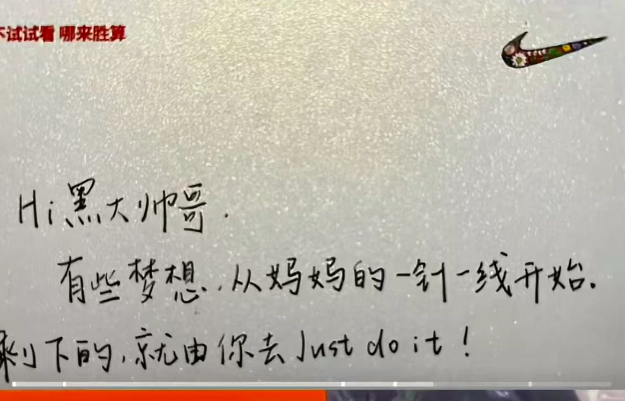 不试试看 哪来胜算
Hi,黑大帅哥.
有些梦想,从妈妈的一针一线开始.
剩下的,就由你去Just do it!